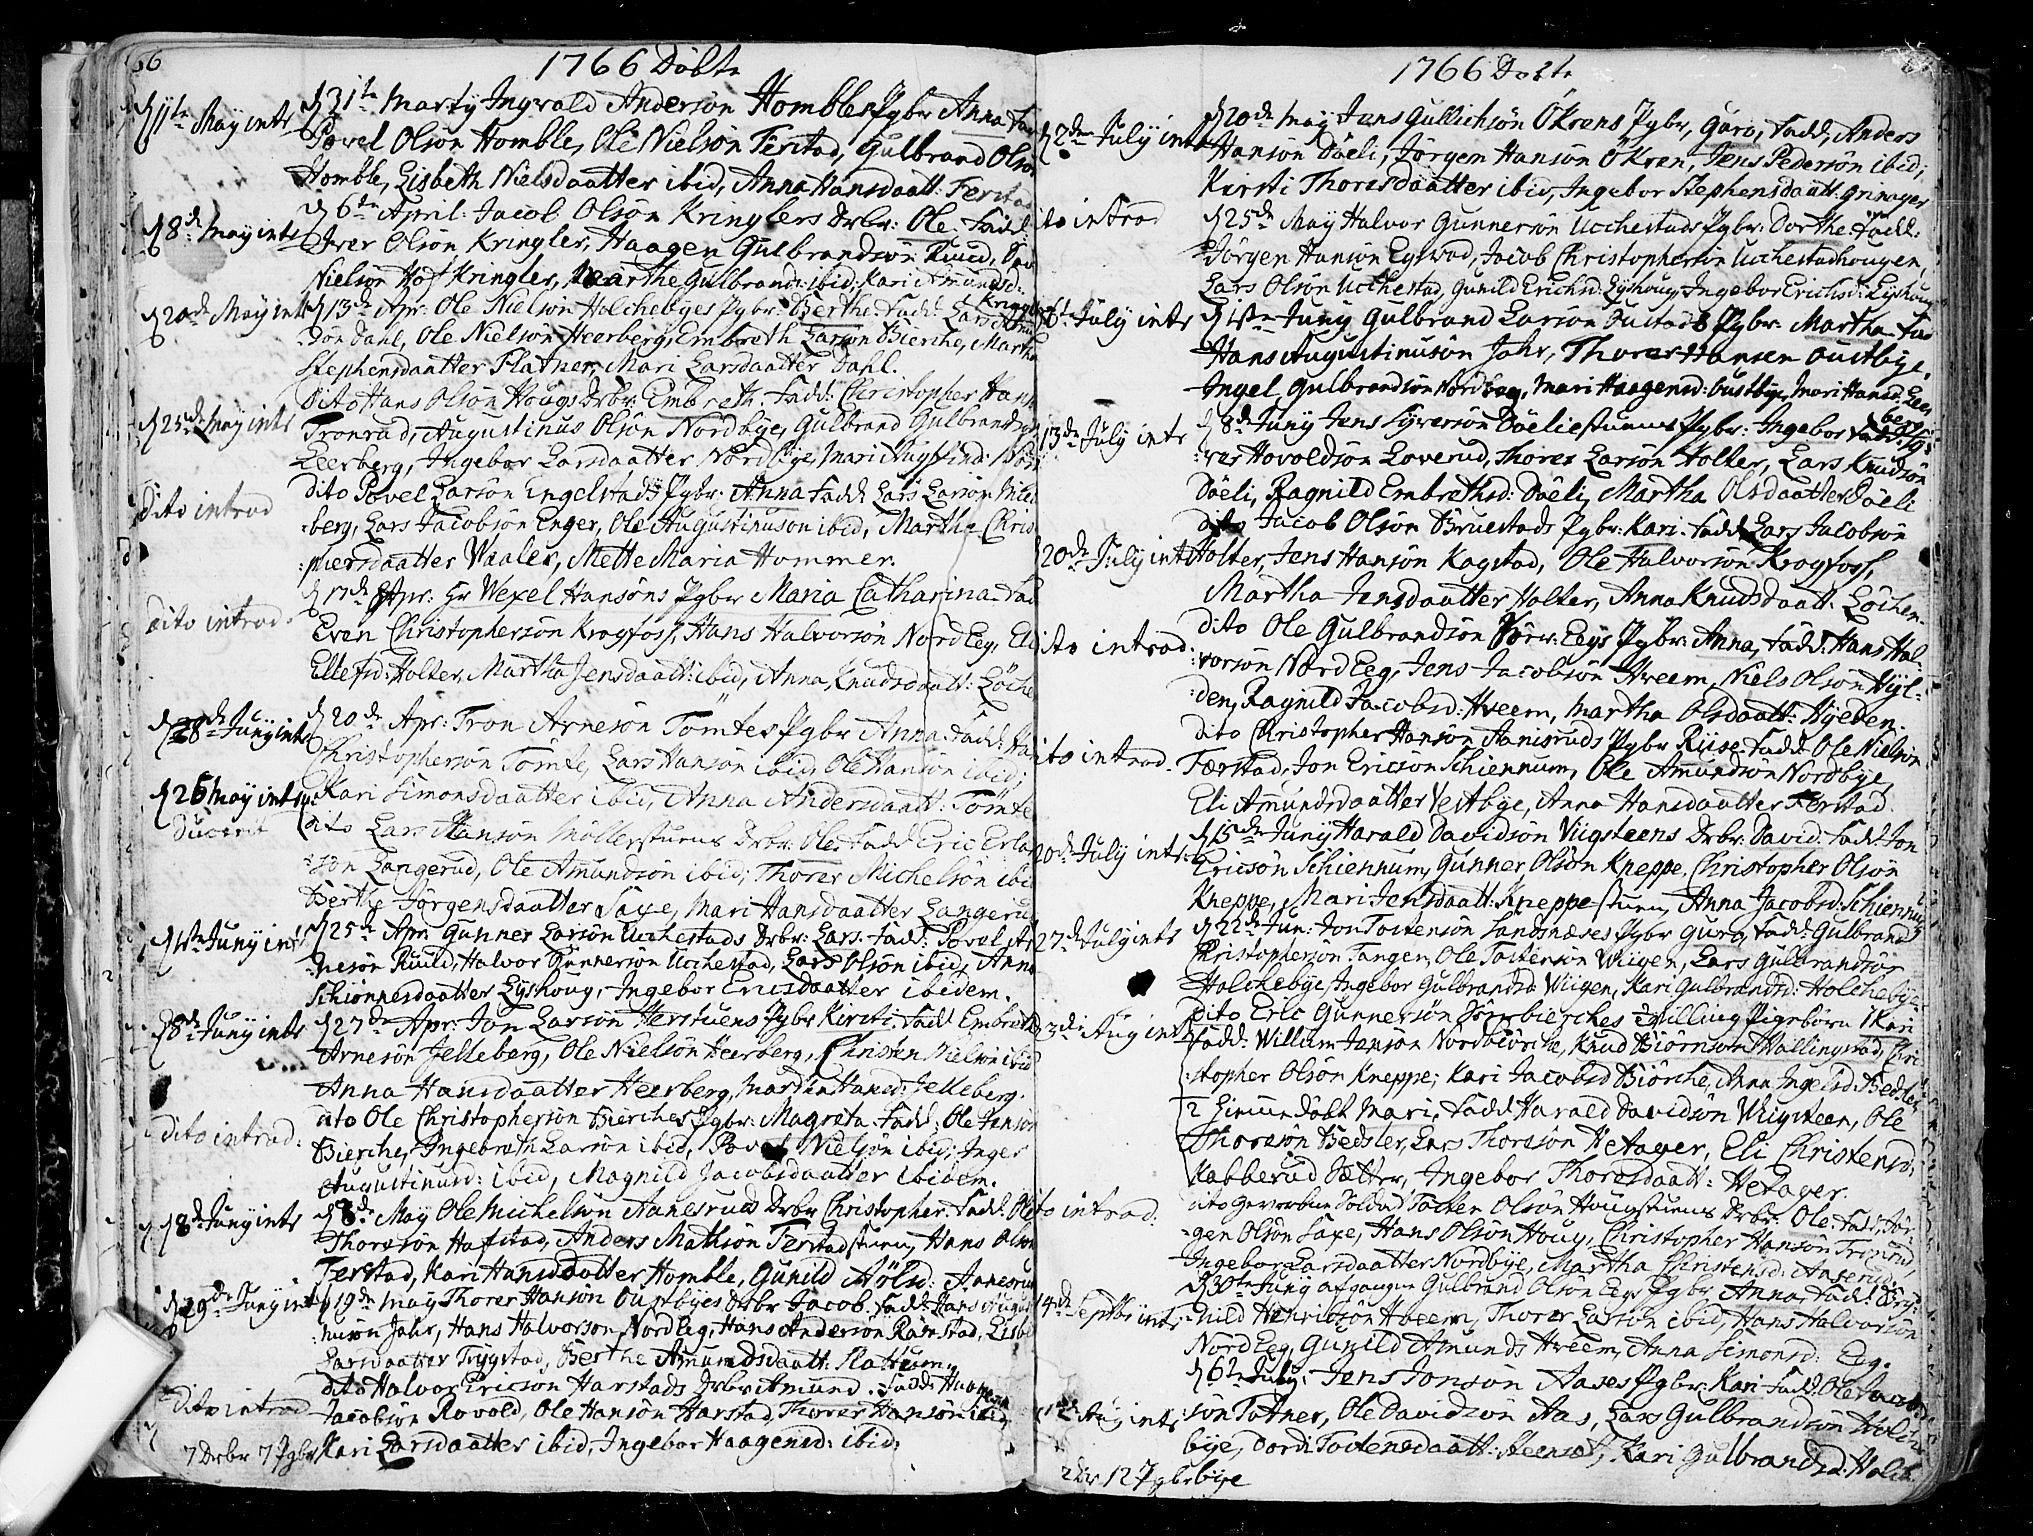 66
1766 Döbte
d 11te May intr
d 31te Marty Ingvald Andersön Hombles Pgbr Anna Fad
Povel Olsön Homble, Ole Nielsön Ferstad, Gulbrand Olsön
Homble, Lisbeth Nielsdaatter ibid, Anna Hansdaatt: Ferstad
d 8de May intr
d 6te April: Jacob Olsön Kringlers Drbr: Ole. Fadd
Iver Olsön Kringler, Haagen Gulbrandsön Ruud,
Nielsön Hof Kringler, Marthe Gulbrands: ibid, Kari Amundsd:
Kringler
d 20de May intr
d 13de Apr: Ole Nielsön Holchebyes Pgbr: Berthe. Fadd: Lars
Dahl, Ole Nielsön Heerberg, Embreth Larsön Bierche, Martha
Stephensdaatter Platner, Mari Larsdaatter Dahl.
d 25de May intr
Dito Hans Olsön Hougs Drbr: Embreth. Fadd: Christopher Hans
Tronrud, Augustinus Olsön Nordbye, Gulbrand Gulbrands
Leerberg, Ingebor Larsdaatter Nordbye, Mari
dito introd
dito Povel Larsön Engelstads Pgbr: Anna Fadd Lars Larsön
berg, Lars Jacobsön Enger, Ole Augustinusön ibid, Martha Chris
phersdaatter Vaaler, Mette Maria Hommer.
dito introd.
d 17de Apr: Hr Wexel Hansöns Pgbr Maria Catharina Fad
Even Christophersön Krogfoss, Hans Halvorsön Nord Eeg, Eli
Ellefsd: Holter, Martha Jensdaatt: ibid, Anna Knudsdaatt: Löche
d 28de Juny intr
d 20de Apr: Tron Arnesön Tömtes Pgbr Anna. Fadd: Ha
Christophersön Tömte, Lars Hansön ibid, Ole Hansön ibid;
Kari Simonsdaatter ibid, Anna Andersdaatt: Tömte
d 26 May intro
ducerit
dito Lars Hansön Möllerstuens Drbr: Ole. Fadd Eric Erla
sön Langerud, Ole Amundsön ibid; Thorer Michelsön ibid
Berthe Jörgensdaatter Saxe, Mari Hansdaatter Langerud
d 1te Juny intr
d 25de Apr. Gunner Larsön Ucchestads Drbr: Lars. Fadd: Povel Ar
nesön Ruud, Halvor Gunnersön Ucchestad, Lars Olsön ibid, Anna
Schiönnesdaatter Eyshoug, Ingebor Ericsdaatter ibidem.
d 8de Juny intr
d 27de Apr: Jon Larsön Herstuens Pgbr Kirsti. Fadd Embreth
Arnesön Jelleberg, Ole Nielsön Heerberg, Christen Nielsön ibid
Anna Hansdaatter Heerberg, Martha Hansd: Jelleberg.
dito introd:
dito Ole Christophersön Bierches Pgbr: Magreta. Fadd: Ole Jensön
Bierche, Ingebreth Larsön ibid, Povel Nielsön ibid; Inger
Augustinusd: ibid, Magnild Jacobsdaatter ibidem.
d 8de Juny intr
d 8de May Ole Michelsön Aanesruds Drbr Christopher. Fadd: Ole
Thoresön Hafstad, Anders Mathsön Ferstadstuen, Hans Olsön
Ferstad, Kari Hansdaatter Homble, Gunild Aölsd: Aanesrud
d 29de Juny intr
d 19de May Thorer Hansön Oustbyes Drbr Jacob. Fadd: Hans Augusti
nusön Jahr, Hans Halvorsön Nord Eeg, Hans Andersön Ramstad, Lisbe
Larsdaatter Trygstad, Berthe Amundsdaatt: Slattum.
Dito introd
dito Halvor Ericsön Harstads Drbr: Amund. Fadd: Huo
Jacobsön Rovold, Ole Hansön Harstad, Thorer Hansön ibid,
Kari Larsdaatter ibid, Ingebor Haagensd: ibid.
7 Drbr 7 Pgbr
1766 Dobte
d 2den July intr
d 20de May Hans Gullichsön Ökrens Pgbr, Guro, Fadd, Anders
Hansön Döeli, Jörgen Hansön Ökren, Jens Pedersön ibid,
Kirsti Thoresdaatter ibid, Ingebor Stephensdaatt: Grinager
ito introd
d 25de May Halvor Gunnersön Ucchestads Pgbr: Dorthe. Fadd:
Jörgen Hansön Egsrud, Jacob Christophersön Ucchestadhougen,
Lars Olsön Ucchestad, Gunild Erichsd: Eyshoug, Ingebor Erichsd: Eyshoug
6te July intr
d 1ste Juny Gulbrand Larsön Justads Pgbr: Martha. Fad
Hans Augustinusön Jahr, Thorer Hansen Oustbye,
Ingel Gulbrandsön Nordbye, Mari Haagensd: Oustbye, Mari Hansd: Leer
berg
13de July intr
d 8de Juny Jens Syversön Döeliestuens Pgbr: Ingebor Fadd: Sy
ver Hovoldsön Loverud, Thorer Larsön Holter, Lars Knudsön
Döeli, Ragnild Embrethsd: Döeli, Martha Olsdaatter Döeli
20de July intr
dito Jacob Olsön Bruestads Pgbr: Kari. Fadd Lars Jacobsön
Holter, Jens Hansön Kagstad, Ole Halvorsön Krogfoss,
Martha Jensdaatter Holter, Anna Knudsdaatt: Löchen.
ito introd:
dito Ole Gulbrandsön Eegs Pgbr: Anna, Fadd: Hans Hal-
vorsön Nord Eeg, Jens Jacobsön Hveem, Niels Olsön Hyl-
den, Ragnild Jacobsd: Hveem, Martha Olsdaatt: Hyeden.
ito introd.
dito Christopher Hansön Hanisruds Pgbr Riise. Fadd: Ole Nielsön
Færstad, Jon Ericsön Schiennum, Ole Amundsön Nordbye,
Eli Amundsdaatter Vestbye, Anna Hansdaatter Ferstad.
20de July intr:
d 15de Juny Harald Davidsön Viigsteens Drbr: David. Fadd: Jon
Ericsön Schiennum, Gunner Olsön Kneppe, Christopher Olsön
Kneppe, Mari Jensdaatt: Kneppestuen, Anna Jacobsd: Schiennum
27de July intr
d 22de Jun: Jon Tostensön Sandsnæses Pgbr Guro, Fadd: Gulbrand
Christophersön Tangen, Ole Tostensön Viigen, Lars Gulbrandsön
Holchebye, Ingebor Gulbrandsd Viigen, Kari Gulbrandsd: Holchebye
3de Aug intr
dito Eric Gunnersön bierches Tvilling Pigebörn 1 Kari
Fadd: Willum Jensön Nordbiörche, Knud Biörnsön Wallingstad, Chri
stopher Olsön Kneppe; Kari Jacobsd Biörche, Anna Ingelsd Bedsler
2 döbt Mari. Fadd Harald Davidsön Wiigsteen, Ole
Thoresön Bedsler, Lars Thoresön Hetager, Eli Christensd:
Kabberud Sætter, Ingebor Thoresdaatt: Hetager.
to introd:
dito Gevorben Soldad Tosten Olsön Hougstuens Drbr: Ole. Fadd: Jör-
gen Olsön Saxe, Hans Olsön Houg, Christopher Hansön Tronrud,
Ingebor Larsdaatter Nordbye, Martha Christensd: Anserud.
14de Septbr intr
d 30te Juny afgangen Gulbrand Olsön Eegs Pgbr Anna, Fadd:
nild Henricsön Hveem, Thorer Larsön ibid, Hans Halvorsön
Nord Eeg, Gunild Amunds Hveem, Anna Simonsd: Eeg.
Aug intr
d 6te July. Jens Jonsön Aases Pgbr: Kari Fadd: Ole Jacob
sön Totner, Ole Davidsön Aas, Lars Gulbrandsön Holche
bye, Dordi Tostensdaatt: Steenset, Kari Gulbrandsd: Holche
2 Dr 12 Pgbr bye